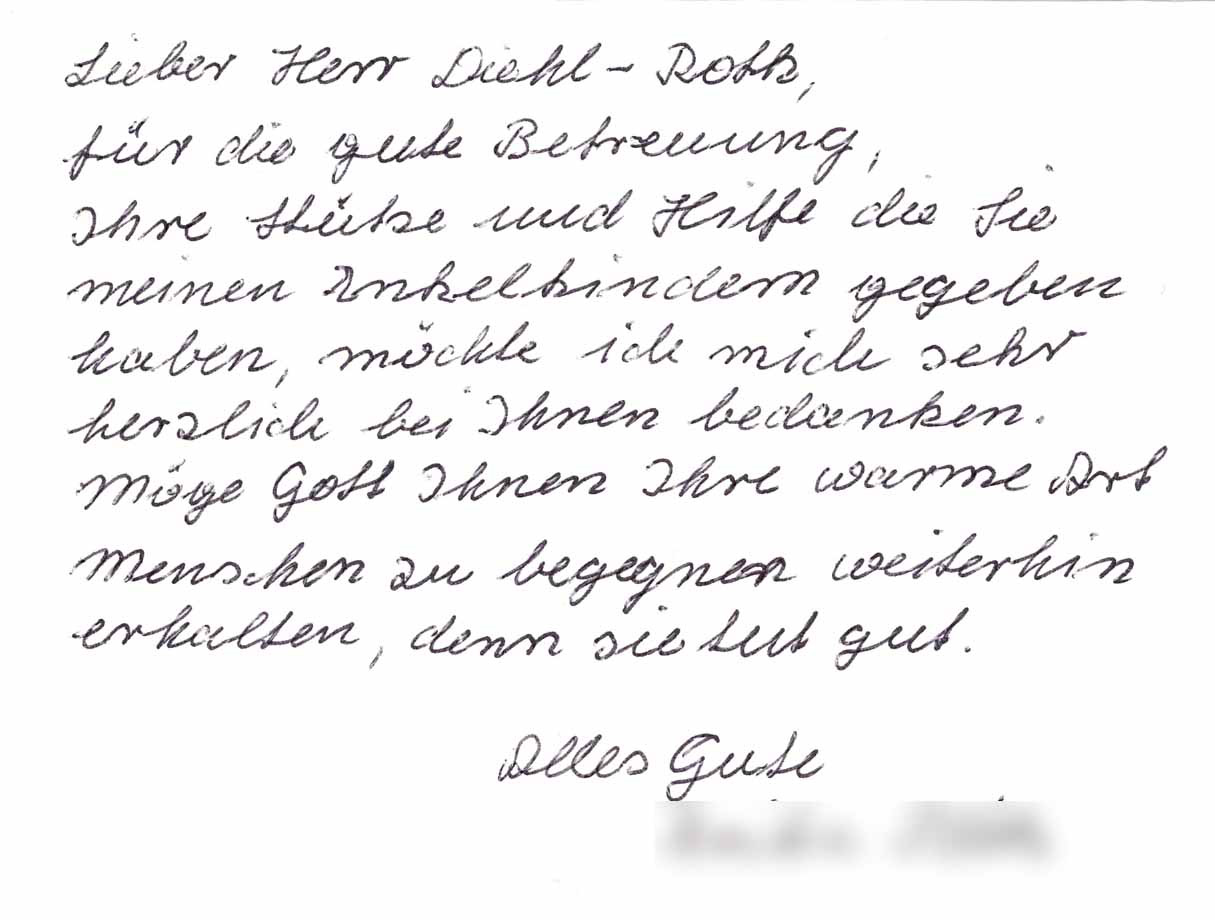 Lieber Herr Diehl-Roth,
für die gute Betreuung,
Ihre Stütze und Hilfe die Sie
meinen Enkelkindern gegeben
haben, möchte ich mich sehr
herzlich bei Ihnen bedanken.
Möge Gott Ihnen Ihre warme Art
Menschen zu begegnen weiterhin
erhalten, denn sie tut gut.
Alles Gute